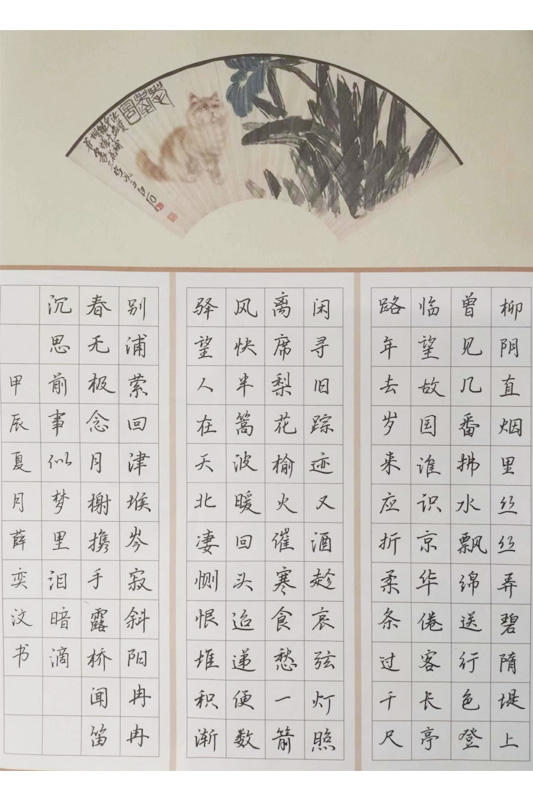 柳阴直烟里丝丝弄碧隋堤上
曾见几番拂水飘绵送行色登
临望故国谁识京华倦客长亭
路年去岁来应折柔条过千尺
闲寻旧踪迹又酒趁哀弦灯照
离席梨花榆火催寒食愁一箭
风快半篙波暖回头迢递便数
驿望人在天北凄恻恨堆积渐
别浦萦回津堠岑寂斜阳冉冉
春无极念月榭携手露桥闻笛
沉思前事似梦里泪暗滴
甲辰夏月薛奕汶书